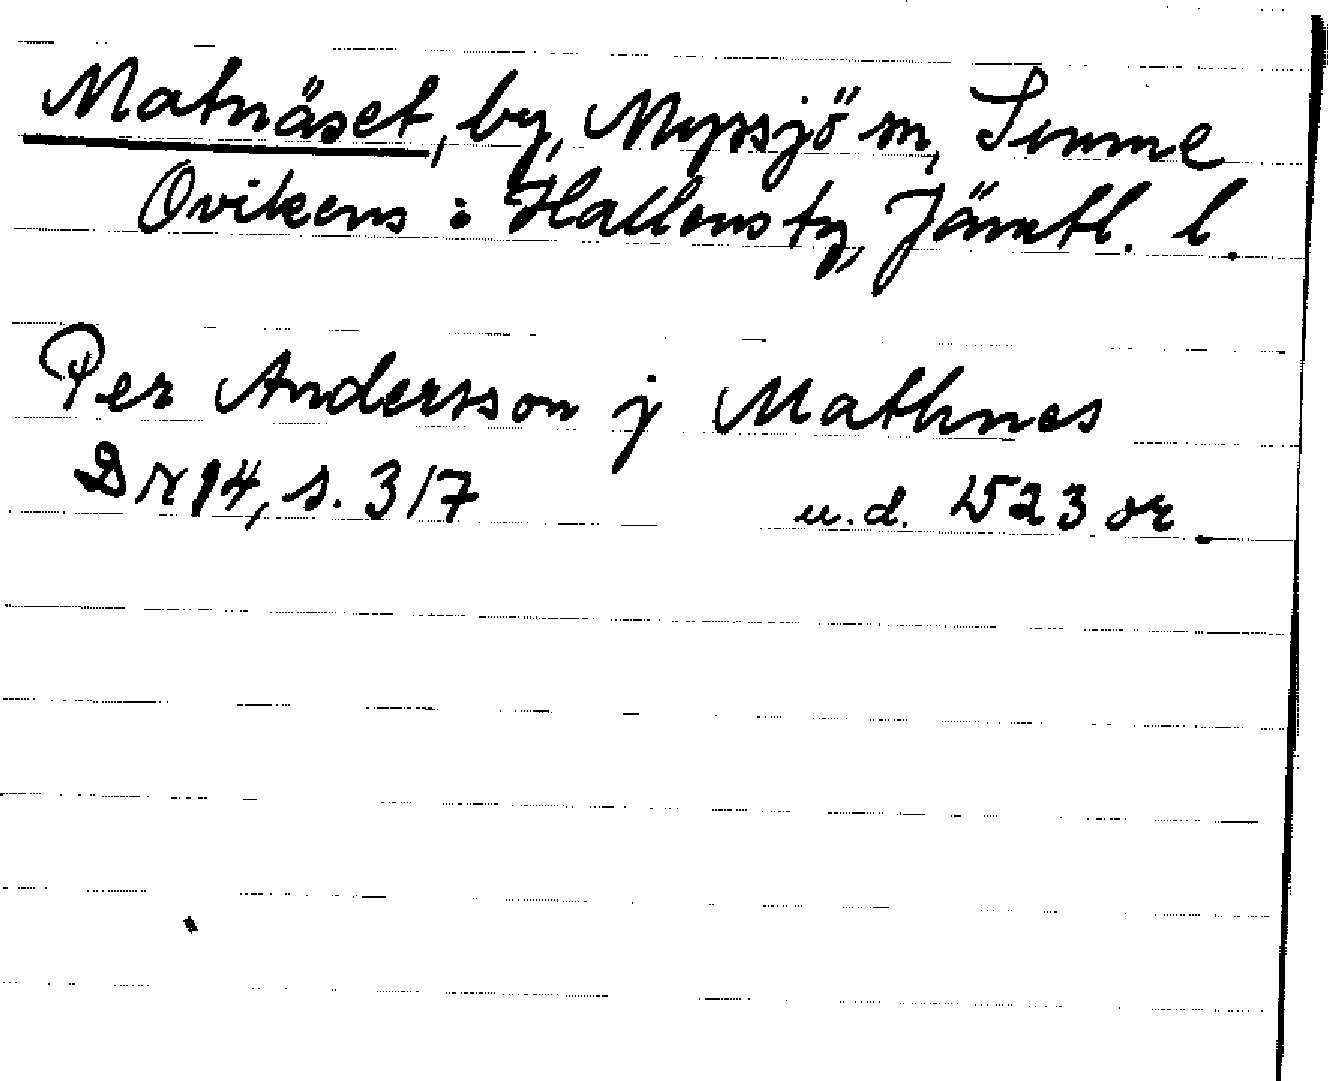 Matnäset, by, Myssjö sn, Sunne
Ovikens o Hallens tg, Jämtl. l.
Per Andersson j Mathnes
DN 14, s. 317 u.d. 1523 or.